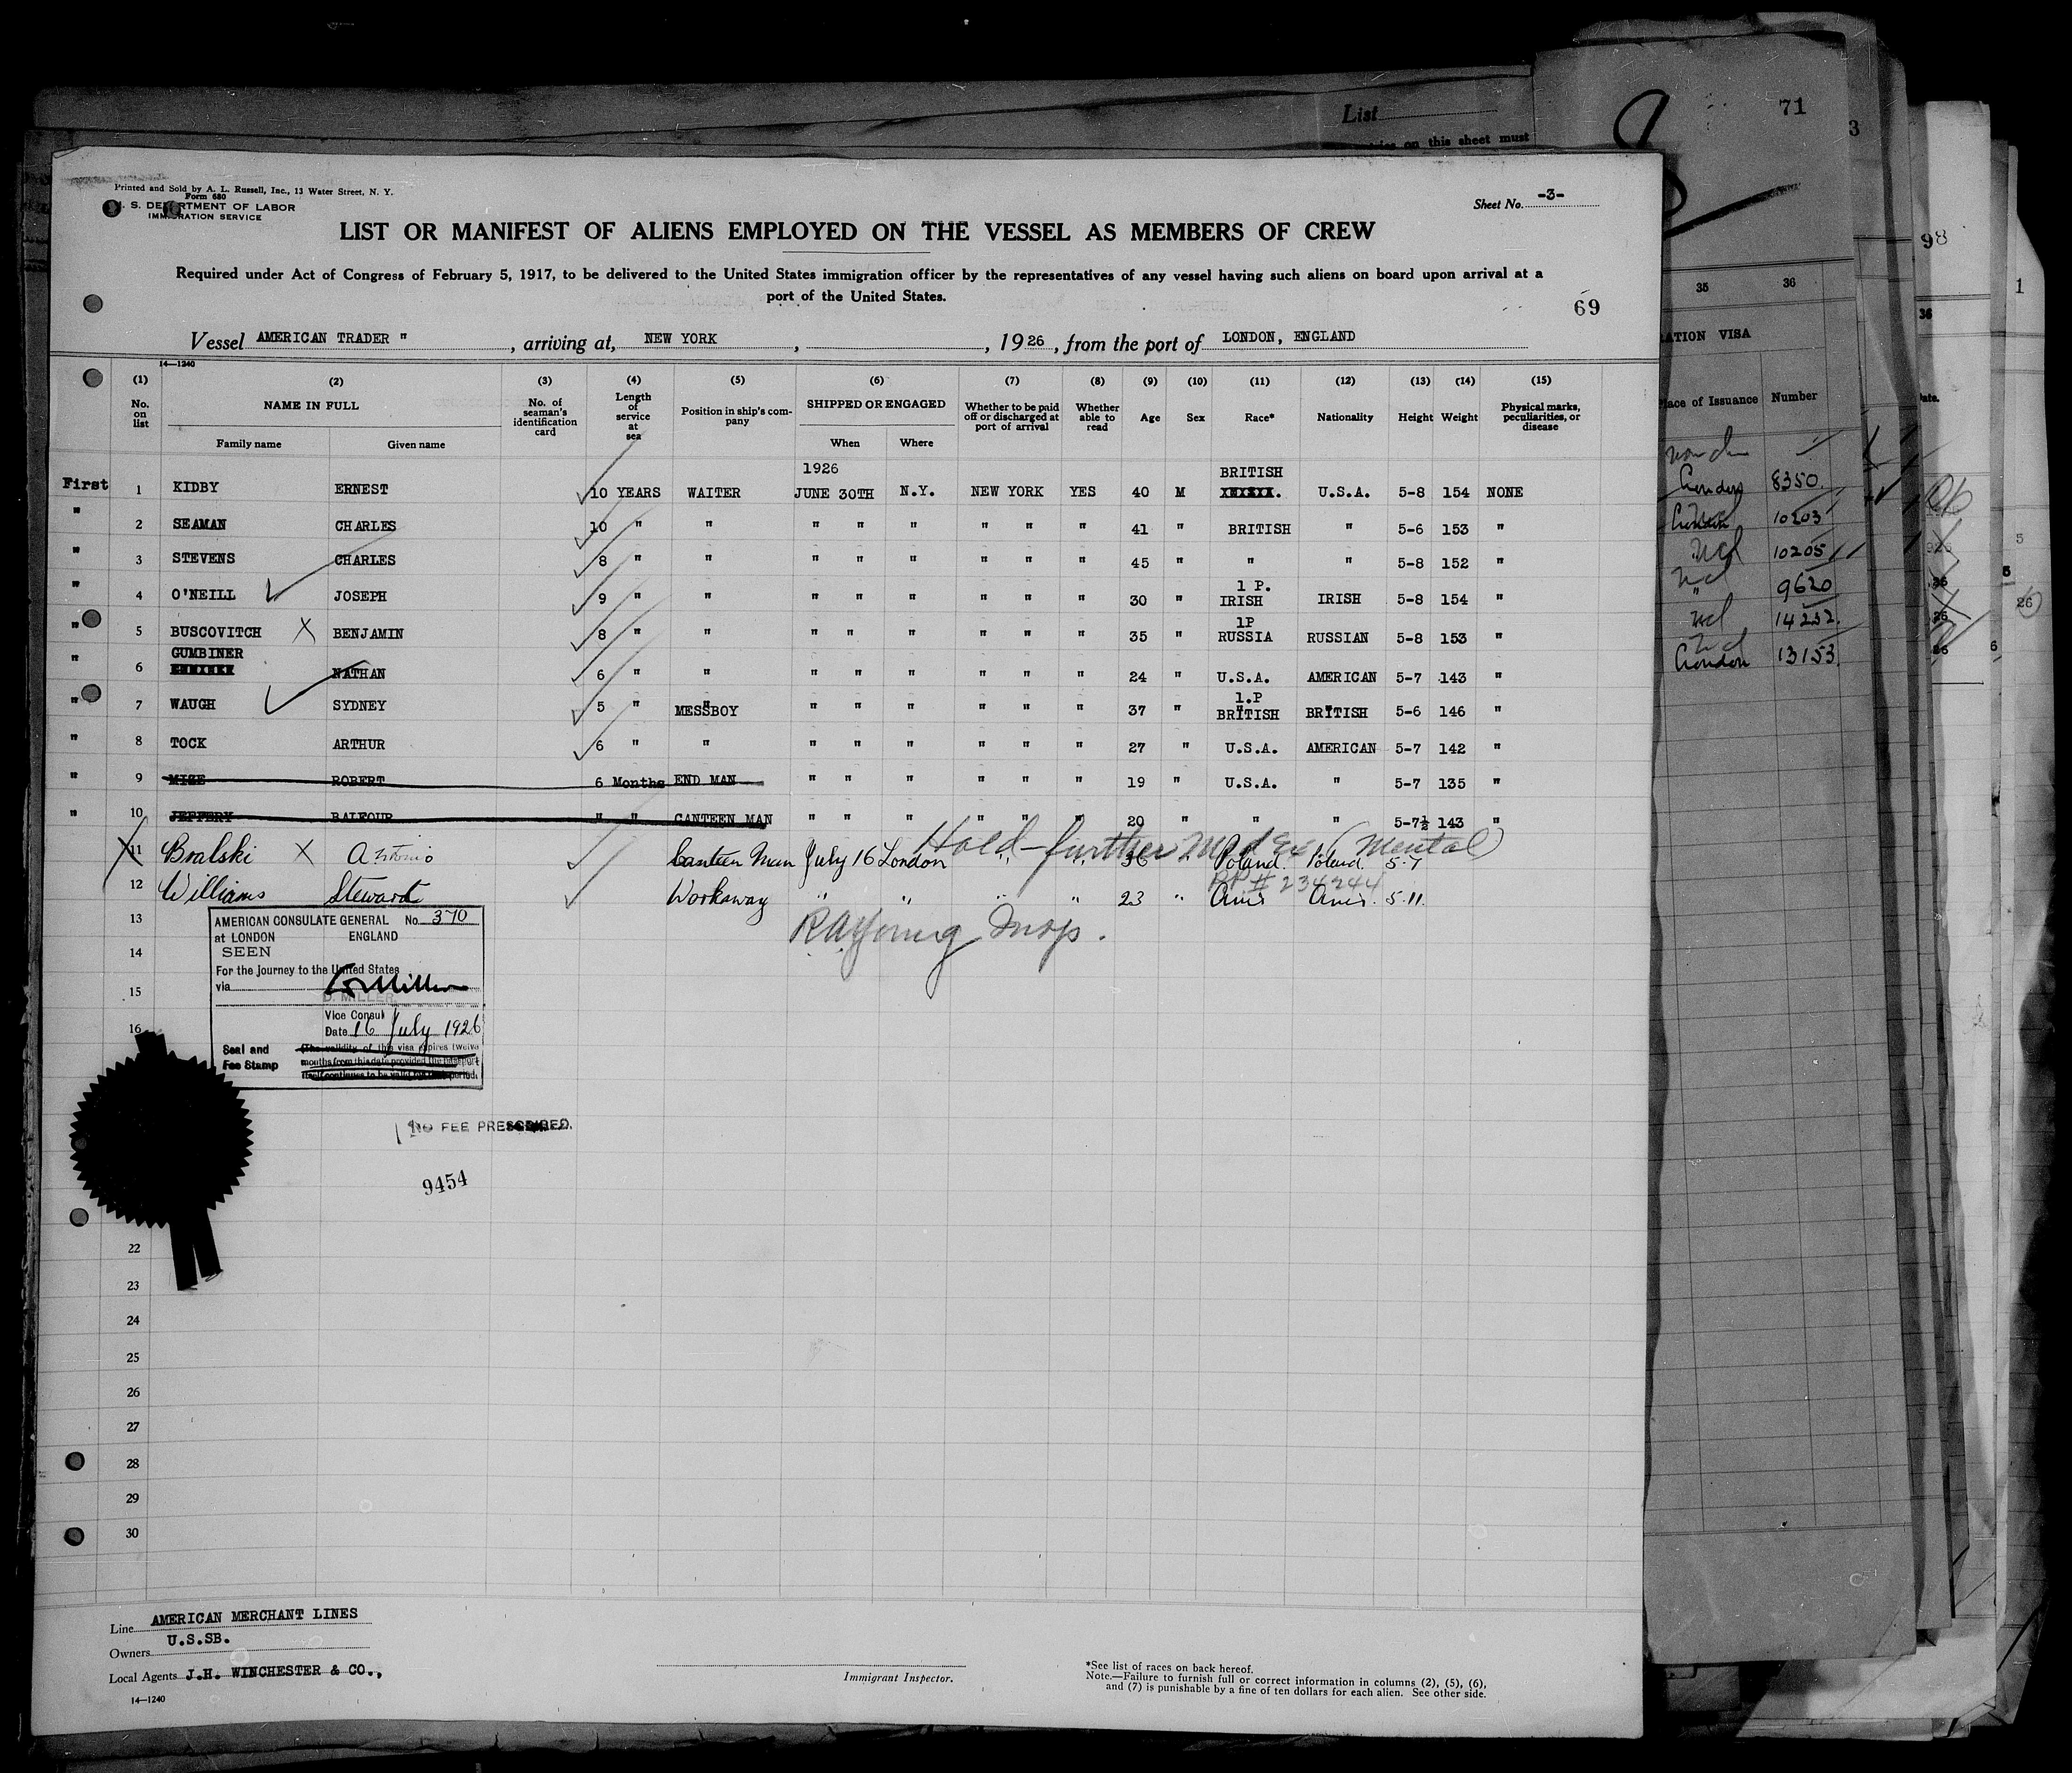 List
entries on this sheet must
71
3
98
1
Printed and Sold by A. L. Russell, Inc., 13 Water Street, N. Y.
Form 680
U. S. DEPARTMENT OF LABOR
IMMIGRATION SERVICE
Sheet No. -3-
LIST OR MANIFEST OF ALIENS EMPLOYED ON THE VESSEL AS MEMBERS OF CREW
Required under Act of Congress of February 5, 1917, to be delivered to the United States immigration officer by the representatives of any vessel having such aliens on board upon arrival at a
port of the United States.
69
Vessel AMERICAN TRADER " , arriving at, NEW YORK , , 1926, from the port of LONDON, ENGLAND
14—1240
(1) (2) (3) (4) (5) (6) (7) (8) (9) (10) (11) (12) (13) (14) (15)
No. on list NAME IN FULL Family name Given name No. of seaman's identification card Length of service at sea Position in ship's company SHIPPED OR ENGAGED When Where Whether to be paid off or discharged at port of arrival Whether able to read Age Sex Race* Nationality Height Weight Physical marks, peculiarities, or disease
1926 BRITISH
First 1 KIDBY ERNEST 10 YEARS WAITER JUNE 30TH N.Y. NEW YORK YES 40 M U.S.A. 5-8 154 NONE
" 2 SEAMAN CHARLES 10 " " " " " " " " 41 " BRITISH " 5-6 153 "
" 3 STEVENS CHARLES 8 " " " " " " " " 45 " " " 5-8 152 "
1 P.
" 4 O'NEILL JOSEPH 9 " " " " " " " " 30 " IRISH IRISH 5-8 154 "
1P
" 5 BUSCOVITCH X BENJAMIN 8 " " " " " " " " 35 " RUSSIA RUSSIAN 5-8 153 "
GUMBINER
" 6 NATHAN 6 " " " " " " " " 24 " U.S.A. AMERICAN 5-7 143 "
1.P
" 7 WAUGH SYDNEY 5 " MESSBOY " " " " " " 37 " BRITISH BRITISH 5-6 146 "
" 8 TOCK ARTHUR 6 " " " " " " " " 27 " U.S.A. AMERICAN 5-7 142 "
" 9 MIZE ROBERT 6 Months END MAN " " " " " " 19 " U.S.A. " 5-7 135 "
" 10 JEFFERY BALFOUR " " CANTEEN MAN " " " " " " 20 " " " 5-7½ 143 "
Hold - further Med Ex (Mental)
X 11 Bralski X Antonio Canteen Man July 16 London " " 36 " Poland. Poland 5-7
PP # 234244
12 Williams Steward Workaway " " " " 23 " 5-11.
13 RA Young Insp.
14
15
16
AMERICAN CONSULATE GENERAL No. 370
at LONDON ENGLAND
SEEN
For the journey to the United States
via
D. MILLER.
Vice Consul
Date 16 July 1926
Seal and
Fee Stamp
(The validity of this visa expires twelve
months from this date provided the passport
itself continues to be valid for that period.
NO FEE PRESCRIBED.
9454
22
23
24
25
26
27
28
29
30
Line AMERICAN MERCHANT LINES
Owners U.S.SB.
Local Agents J.H. WINCHESTER & CO.,
14—1240
Immigrant Inspector.
*See list of races on back hereof.
Note.—Failure to furnish full or correct information in columns (2), (5), (6),
and (7) is punishable by a fine of ten dollars for each alien. See other side.
35 36
VISA
Place of Issuance Number
London 8350.
London 10203
10205
9620
14232.
London 13153.
36
26
5
6